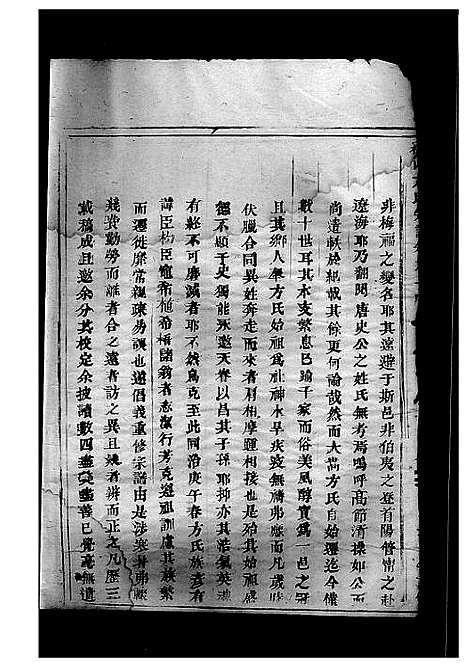 非梅福之變名耶其遠避于斯邑非伯夷之登首陽管甯之赴
遼海耶乃翻閱唐史公之姓氏無考焉嗚呼高節清操如公而
尚遺軼於紙載其餘更何論哉然而大嵩方氏自始遷迄今僅
數十世耳其水支繁息已踰千家而俗美風醇實爲一邑之冠
且其鄉人奉方氏始祖爲社神水旱疾疫無禱弗應而凡歲時
伏臘合同異姓奔走而來者肩相摩踵相接也是殆其始祖盛
德不顯于史獨能永邀天眷以昌其子孫耶抑亦其浩氣英魂
有終不可磨滅者耶不然烏克至此同治庚午春方氏族彥有
諱臣杓臣寵希能希福諸翁者志潔行芳克遵祖訓慮其族繁
而遷徙靡常親疎易誤也還倡義重修宗譜由是涉寒暑弗輟
幾費勤勞而離者合之遠者訪之異且疑者辨而正之凡歷三
載稿成且邀余分其校定余披讀數四盡美盡善已覺毫無遺